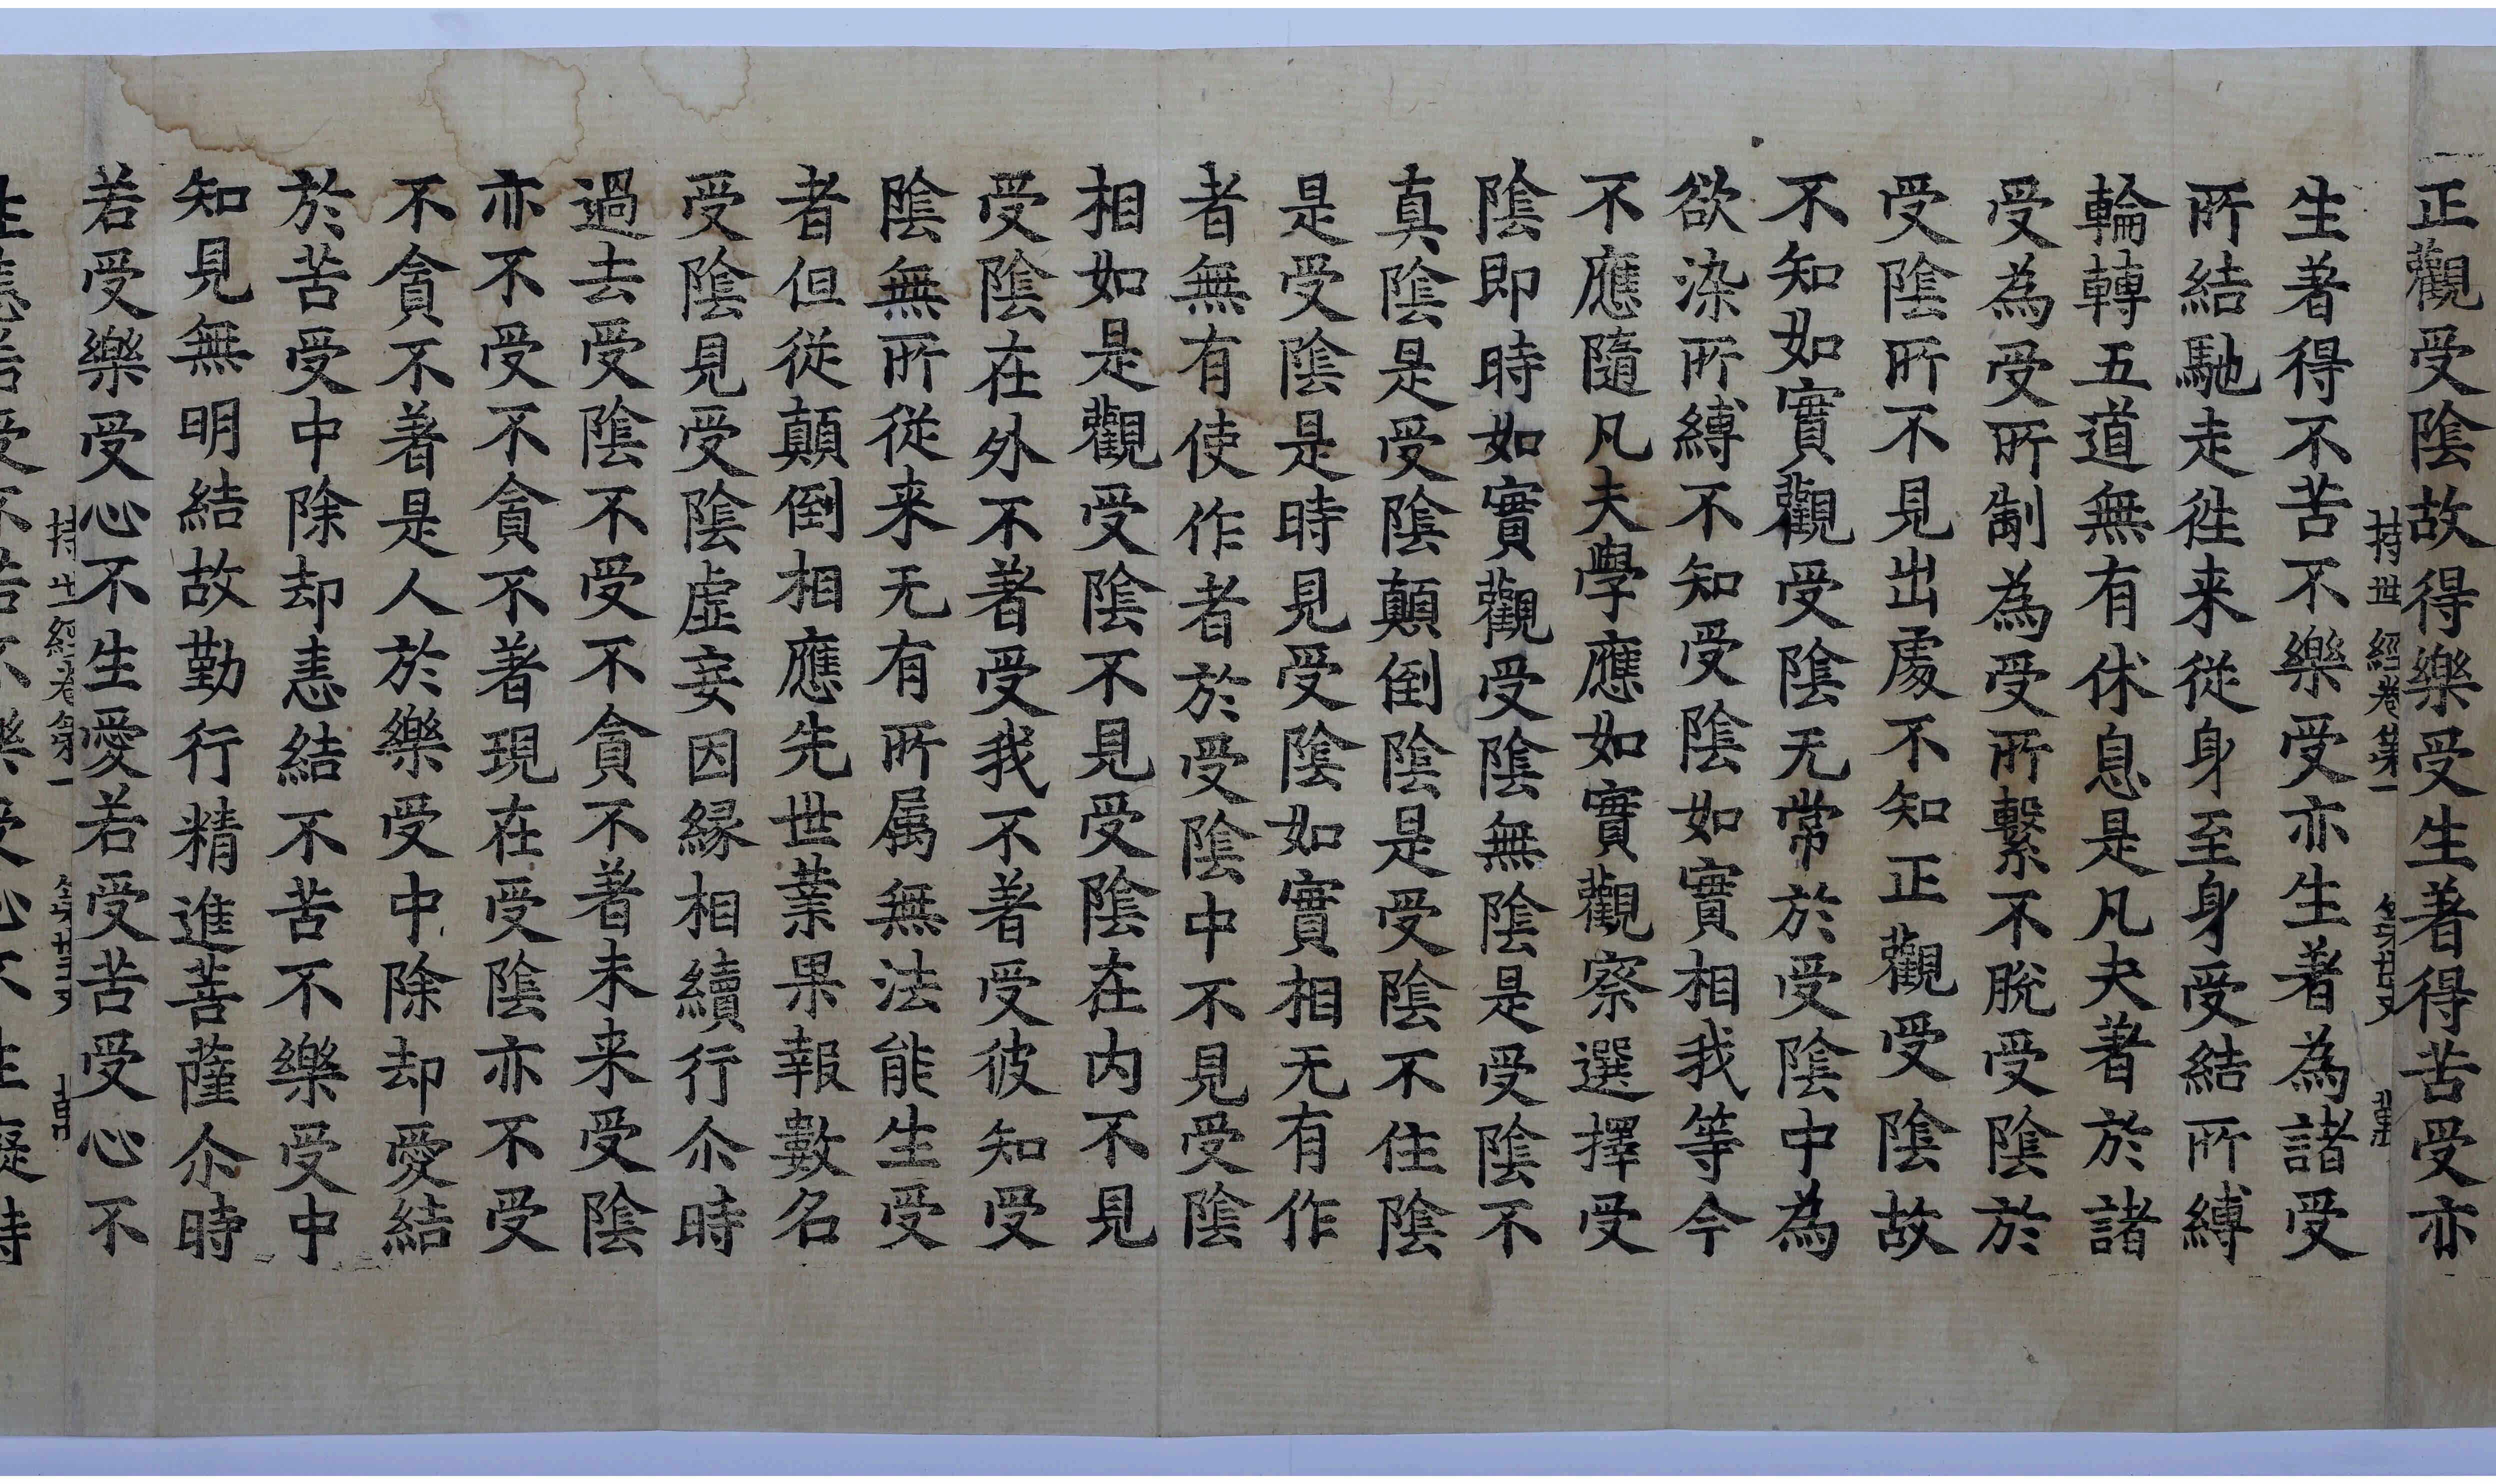 正觀受陰故得樂受生著得苦受亦
持世經卷第一
生著得不苦不樂受亦生著為諸受
所結馳走徃来從身至身受結所縛
輪轉五道無有休息是凡夫著於諸
受為受所制為受所繫不脫受陰於
受陰所不見出處不知正觀受陰故
不知如實觀受陰无常於受陰中為
欲染所縛不知受陰如實相我等今
不應隨凡夫學應如實觀察選擇受
陰即時如實觀受陰無陰是受陰不
真陰是受陰顛倒陰是受陰不住陰
是受陰是時見受陰如實相无有作
者無有使作者於受陰中不見受陰
相如是觀受陰不見受陰在内不見
受陰在外不著受我不著受彼知受
陰無所從来无有所属無法能生受
者但從顛倒相應先世業果報數名
受陰見受陰虛妄因縁相續行尒時
過去受陰不受不貪不著未来受陰
亦不受不貪不著現在受陰亦不受
不貪不著是人於樂受中除却愛結
於苦受中除却恚結不苦不樂受中
知見無明結故勤行精進菩薩尒時
若受樂受心不生愛若受苦受心不
持世經卷第一